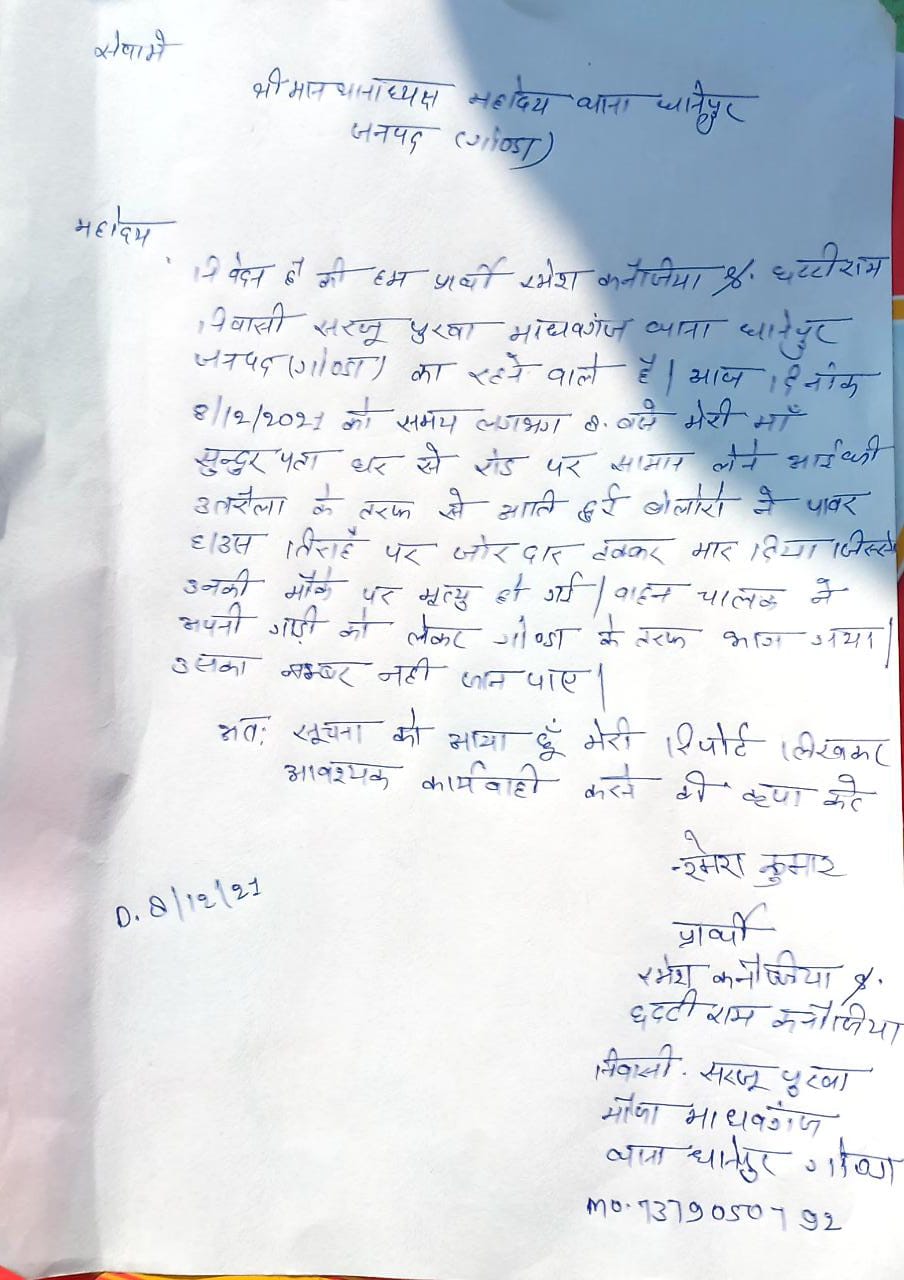 सेवामे
श्रीमान थानाध्यक्ष महोदय थाना धानेपुर
जनपद (गोण्डा)
महोदय
निवेदन है की हम प्रार्थी रमेश कनौजिया S/. छट्टीराम
निवासी सरजू पुरवा माधवगंज थाना धानेपुर
जनपद (गोण्डा) का रहने वाले है। आज दिनांक
8/12/2021 को समय लगभग 8. बजे मेरी माँ
सुन्दुर पता घर से रोड पर सामान लेने आई थी
उतरौला के तरफ से आती हुई बोलोरो ने पावर
हाउस तिराहै पर जोर दार टक्कर मार दिया जिससे
उनकी मौके पर मृत्यु हो गई। वाहन चालक ने
अपनी गाड़ी को लेकर गोण्डा के तरफ भाग गया।
उसका नम्बर नही जान पाए।
अतः सूचना को आया हूँ मेरी रिपोर्ट लिखकर
आवश्यक कार्यवाही करने की कृपा करे
रमेश कुमार
D. 8/12/21
प्रार्थी
रमेश कनौजिया S/.
छट्टी राम कनौजिया
निवासी. सरजू पुरवा
मौजा माधवगंज
थाना धानेपुर गोण्डा
mo. 7379050792